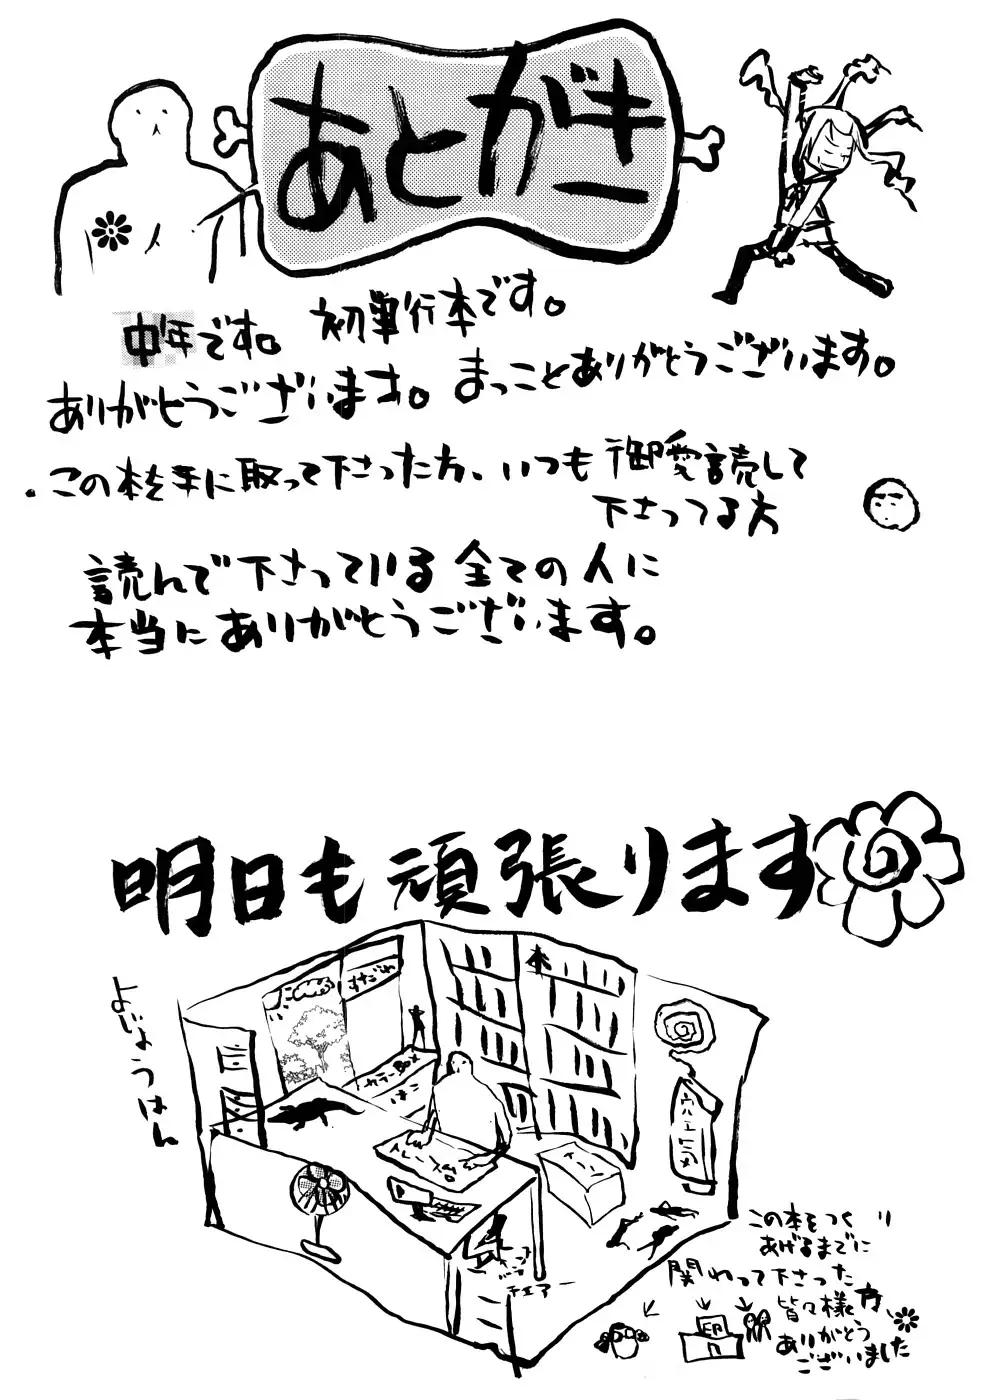 あとがき
中年です。 初単行本です。
ありがとうございます。 まっことありがとうございます。
この本を手に取って下さった方、いつも御愛読して
下さってる方
読んで下さっている全ての人に
本当にありがとうございます。
明日も頑張ります
よじょうはん
すだれ
カラーBox
トレース台
チェアー
この本をつくり
あげるまでに
関わって下さった
皆々様方、
ありがとう
ございました